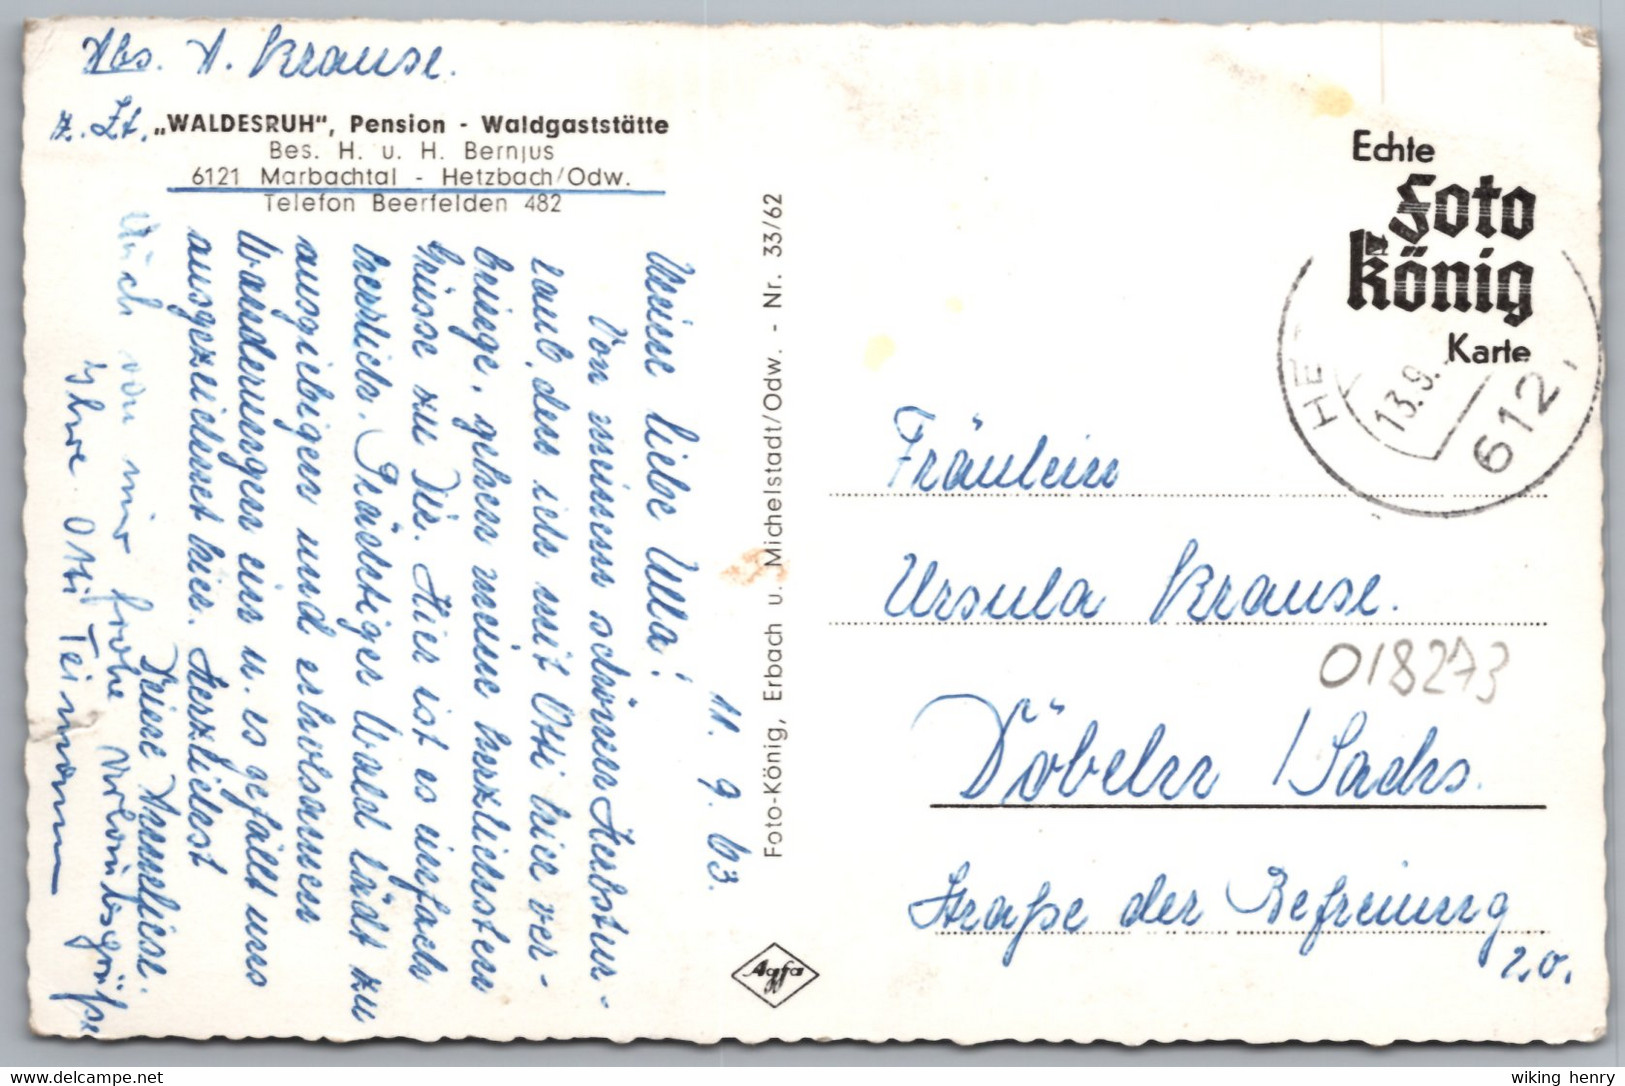 Abs. A. Krause.
z. Zt. „WALDESRUH“, Pension - Waldgaststätte
Bes. H. u. H. Bernjus
6121 Marbachtal - Hetzbach/Odw.
Telefon Beerfelden 482
11. 9. 63.
Meine liebe Ulla!
Von meinem schönen Herbstur-
laub, den ich mit Otti hier ver-
bringe, gehen meine herzlichsten
Grüsse zu Dir. Hier ist es einfach
herrlich. Prächtiger Wald lädt zu
ausgiebigen und erholsamen
Wanderungen ein u. es gefällt uns
ausgezeichnet hier. Herzlichst
Deine Anneliese.
Auch von mir frohe Urlaubsgrüße
Ihre Otti Teinmann
Foto-König, Erbach u. Michelstadt/Odw. - Nr. 33/62
Agfa
Echte
Foto
König
Karte
HE
13.9.
612
Fräulein
Ursula Krause.
018273
Döbeln /Sachs.
Straße der Befreiung
20.
wiking henry